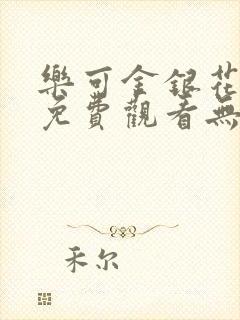 樂可金銀花
免費觀看無
禾尔